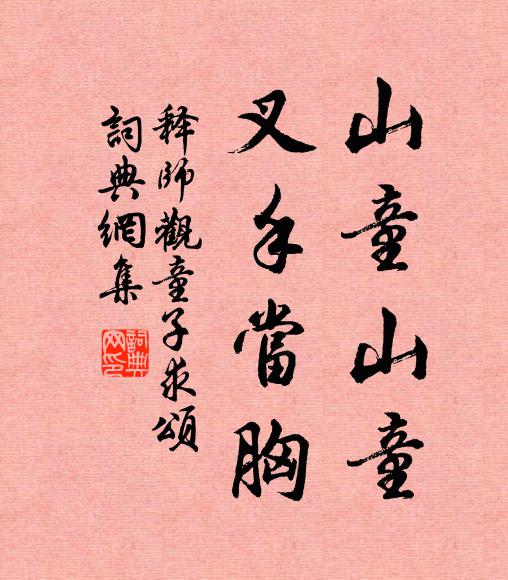 山童山童
叉手當胸
释師觀童子求頌
詞典網集
詞典網印